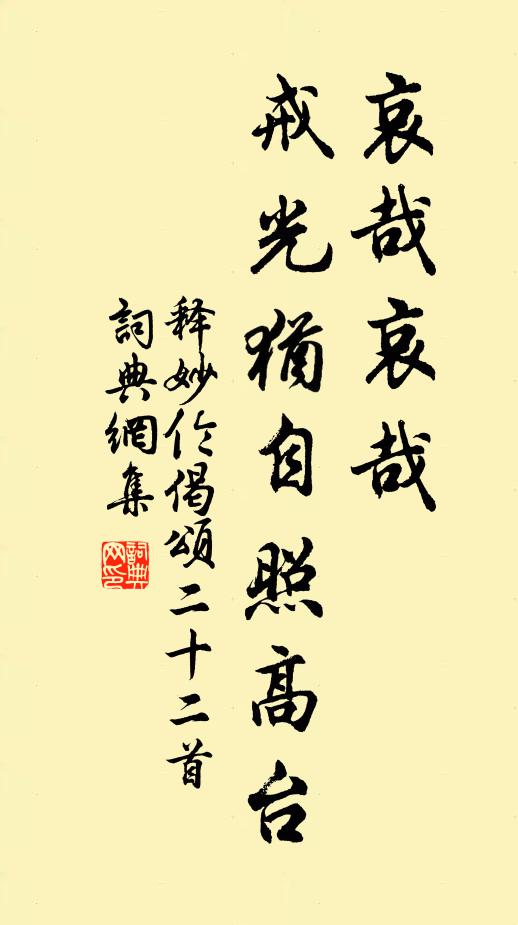 哀哉哀哉
戒光猶自照高台
释妙伦偈頌二十二首
詞典網集
詞典网印